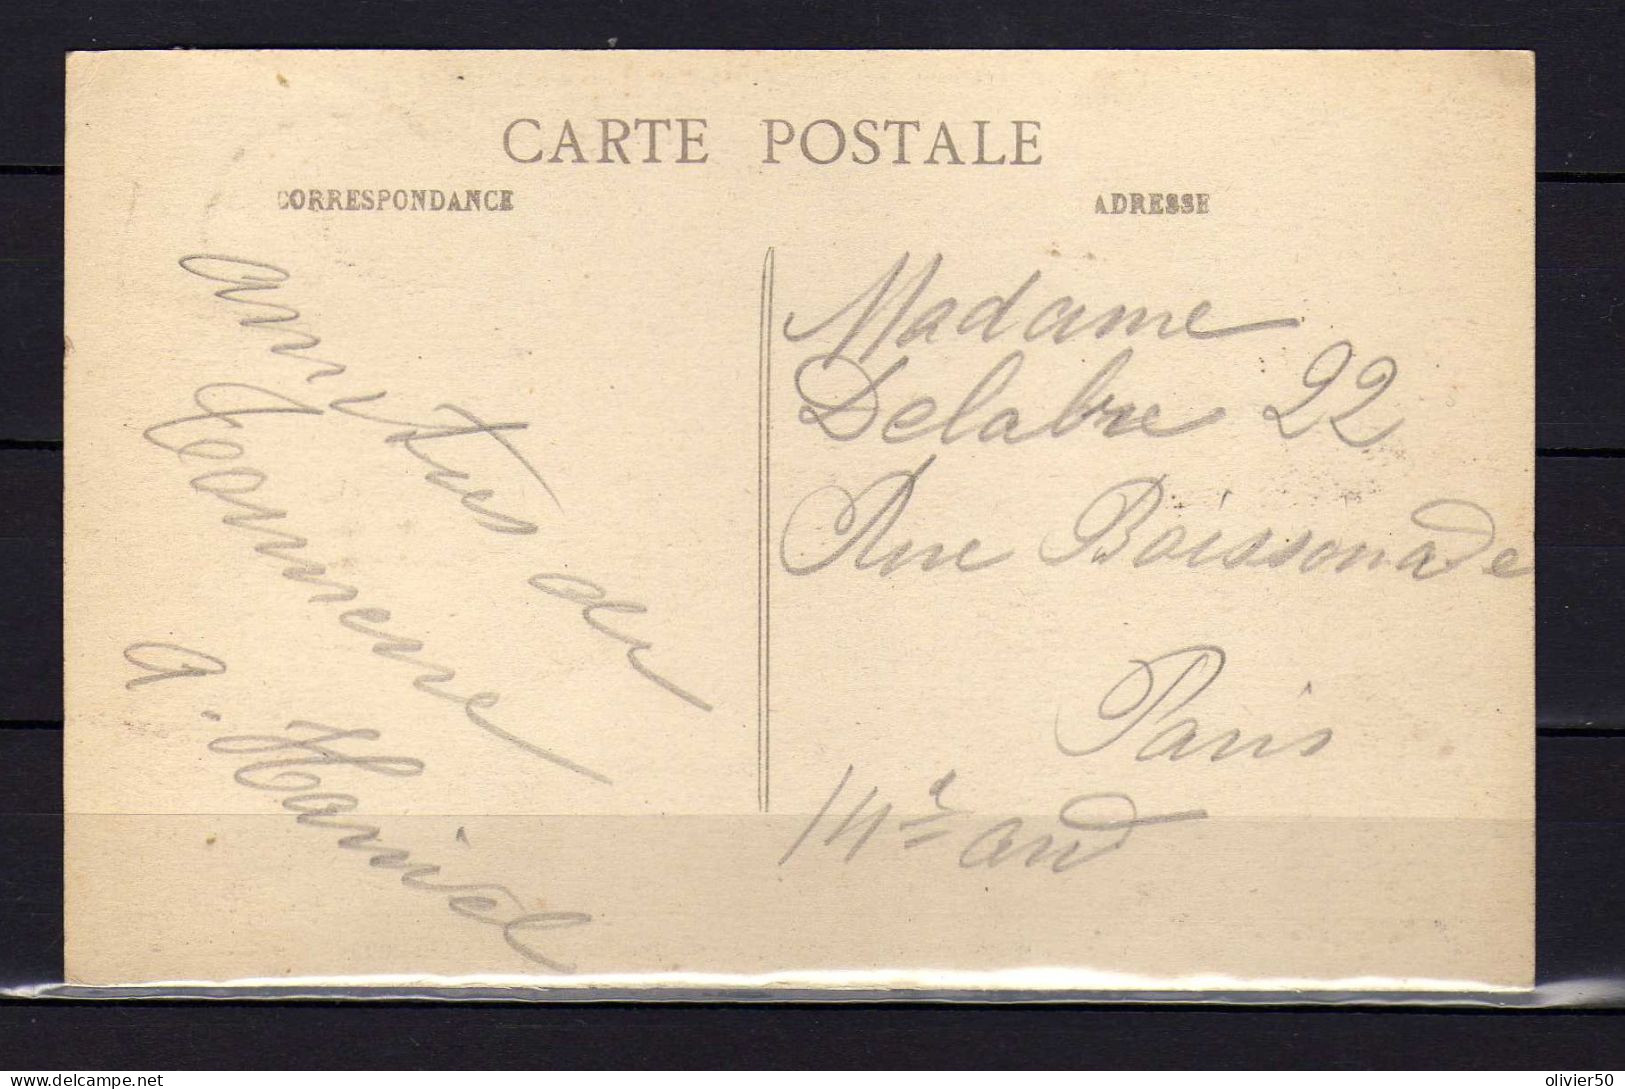 CARTE POSTALE
CORRESPONDANCE
ADRESSE
amitiés de
Tonnerre
a. Hamiel
Madame
Delabre 22
Rue Boissonade
Paris
14è arrd
delcampe.net
olivier50